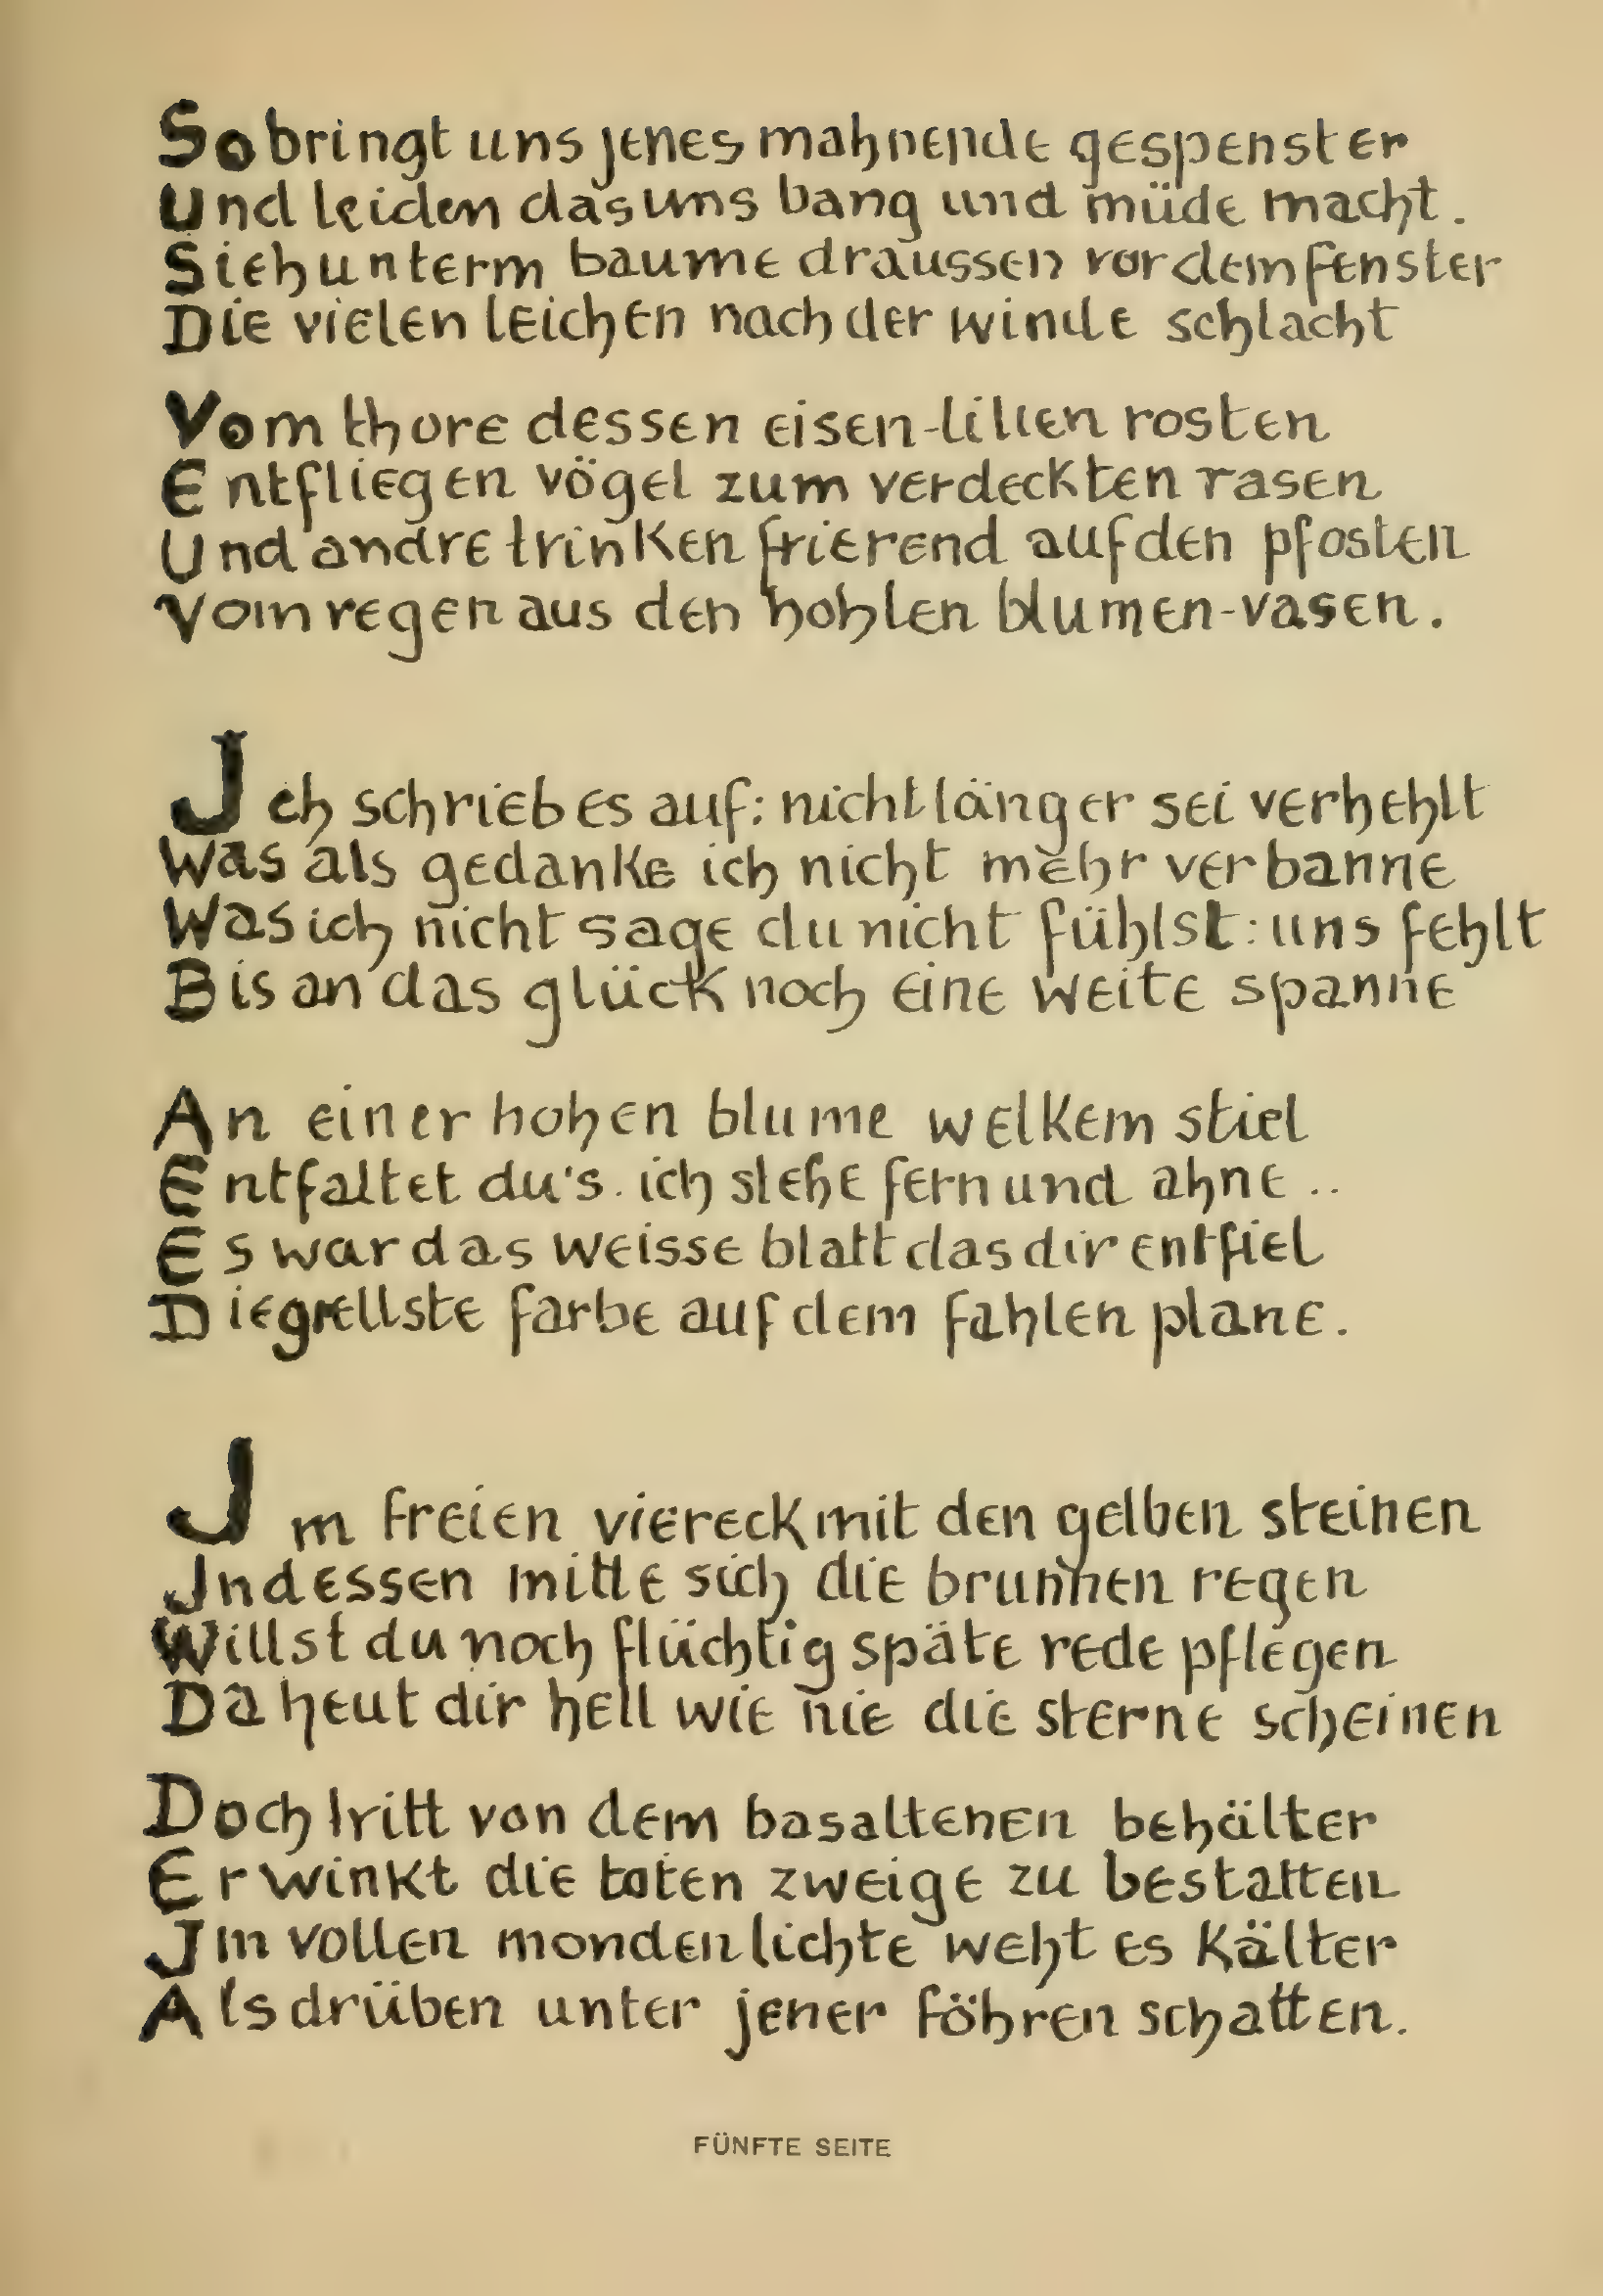 So bringt uns jenes mahnende gespenster
Und leiden das uns bang und müde macht.
Sieh unterm baume draussen vor dem fenster
Die vielen leichen nach der winde schlacht
Vom thore dessen eisen-lilien rosten
Entfliegen vögel zum verdeckten rasen
Und andre trinken frierend auf den pfosten
Vom regen aus den hohlen blumen-vasen.
Jch schrieb es auf: nicht länger sei verhehlt
Was als gedanke ich nicht mehr verbanne
Was ich nicht sage du nicht fühlst: uns fehlt
Bis an das glück noch eine weite spanne
An einer hohen blume welkem stiel
Entfaltet du's. ich stehe fern und ahne ..
Es war das weisse blatt das dir entfiel
Die grellste farbe auf dem fahlen plane.
Jm freien viereck mit den gelben steinen
Jn dessen mitte sich die brunnen regen
Willst du noch flüchtig späte rede pflegen
Da heut dir hell wie nie die sterne scheinen
Doch tritt von dem basaltenen behälter
Er winkt die toten zweige zu bestatten
Jm vollen mondenlichte weht es kälter
Als drüben unter jener föhren schatten.
FÜNFTE SEITE